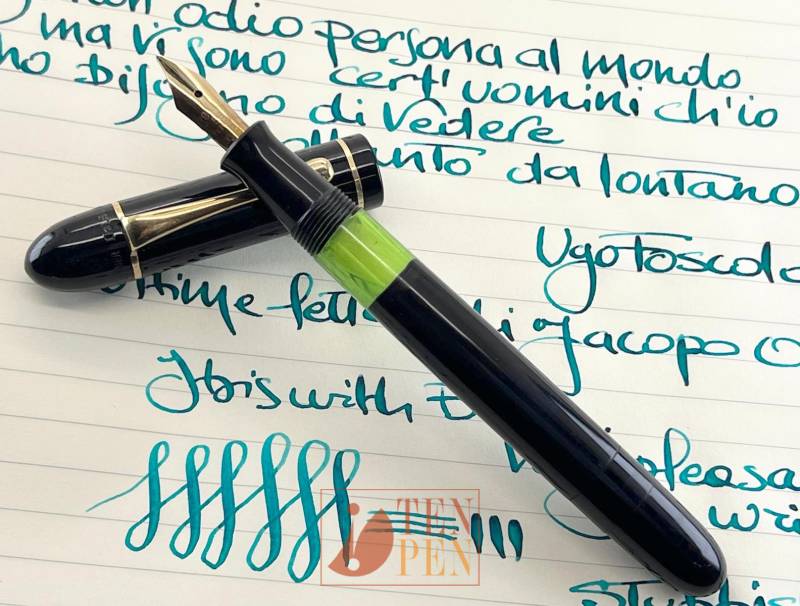 non odio persona al mondo
ma vi sono cert'uomini ch'io
no di vedere
da lontano
Ugo Foscolo
ultime lett di Jacopo O
Ibis with
pleasa
wri
TEN
PEN